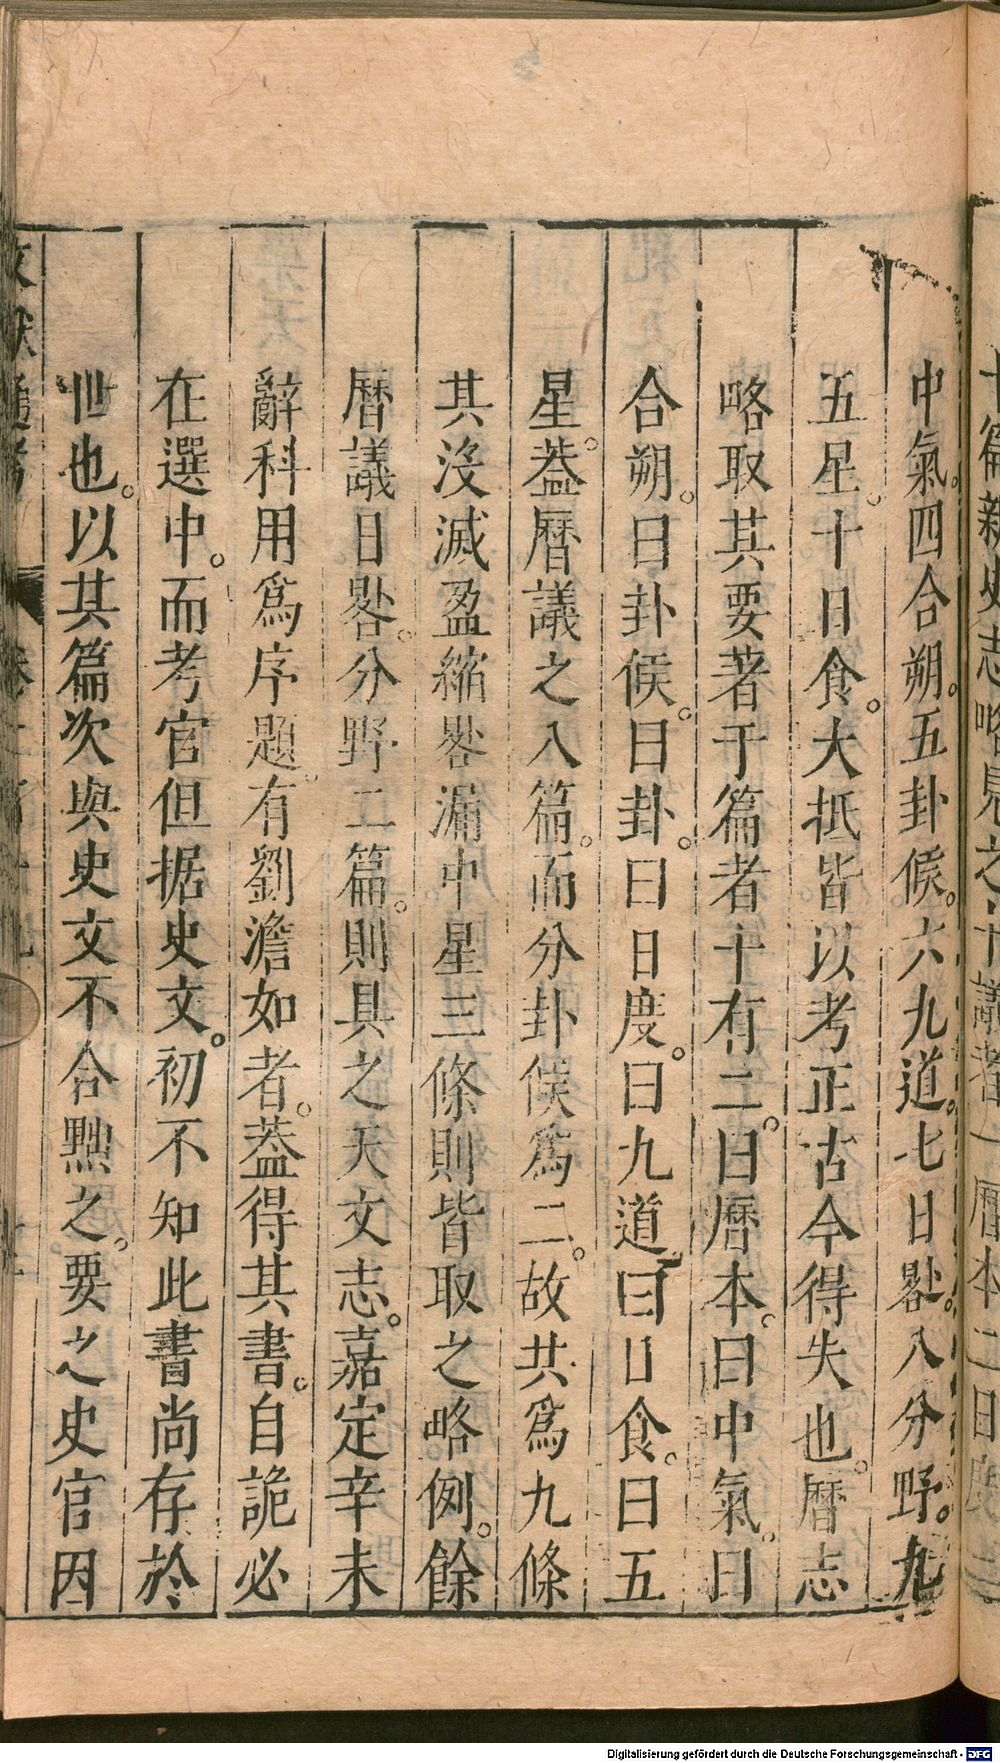 中氣。四合朔。五卦候。六九道。七日晷。八分野。九
五星。十日食。大抵皆以考正古今得失也。曆志
略取其要著于篇者十有二。曰曆本。曰中氣。曰
合朔。曰卦候。曰卦。曰日度。曰九道。曰日食。曰五
星。葢曆議之八篇。而分卦候爲二。故共爲九條
其沒滅盈縮晷漏中星三條則皆取之略例。餘
曆議日晷。分野二篇。則具之天文志。嘉定辛未
辭科用爲序題。有劉澹如者。葢得其書。自詭必
在選中。而考官但据史文。初不知此書尚存於
世也。以其篇次與史文不合黜之。要之史官因
Digitalisierung gefördert durch die Deutsche Forschungsgemeinschaft - DFG